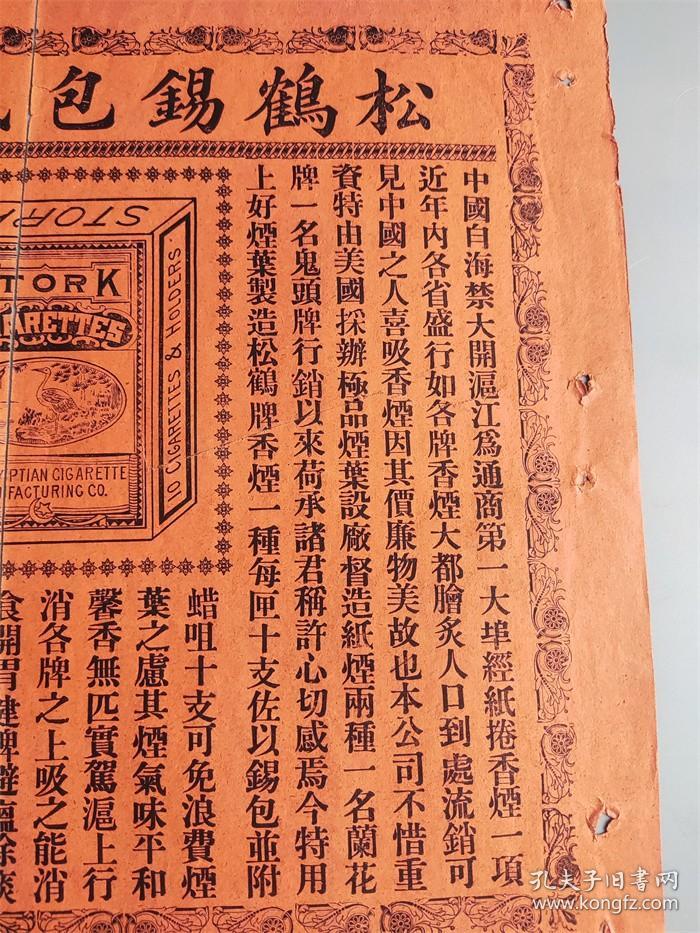 松鶴錫包
中國自海禁大開滬江為通商第一大埠經紙捲香煙一項
近年內各省盛行如各牌香煙大都膾炙人口到處流銷可
見中國之人喜吸香煙因其價廉物美故也本公司不惜重
資特由美國採辦極品煙葉設廠督造紙煙兩種一名蘭花
牌一名鬼頭牌行銷以來荷承諸君稱許心切感焉今特用
上好煙葉製造松鶴牌香煙一種每匣十支佐以錫包並附
蜡咀十支可免浪費煙
葉之慮其煙氣味平和
馨香無匹實駕滬上行
消各牌之上吸之能消
食開胃健脾避瘟除痰
STORK
TORK
CIGARETTES
10 CIGARETTES & HOLDERS
YPTIAN CIGARETTE
FACTURING CO.
孔夫子旧书网
kongfz.com